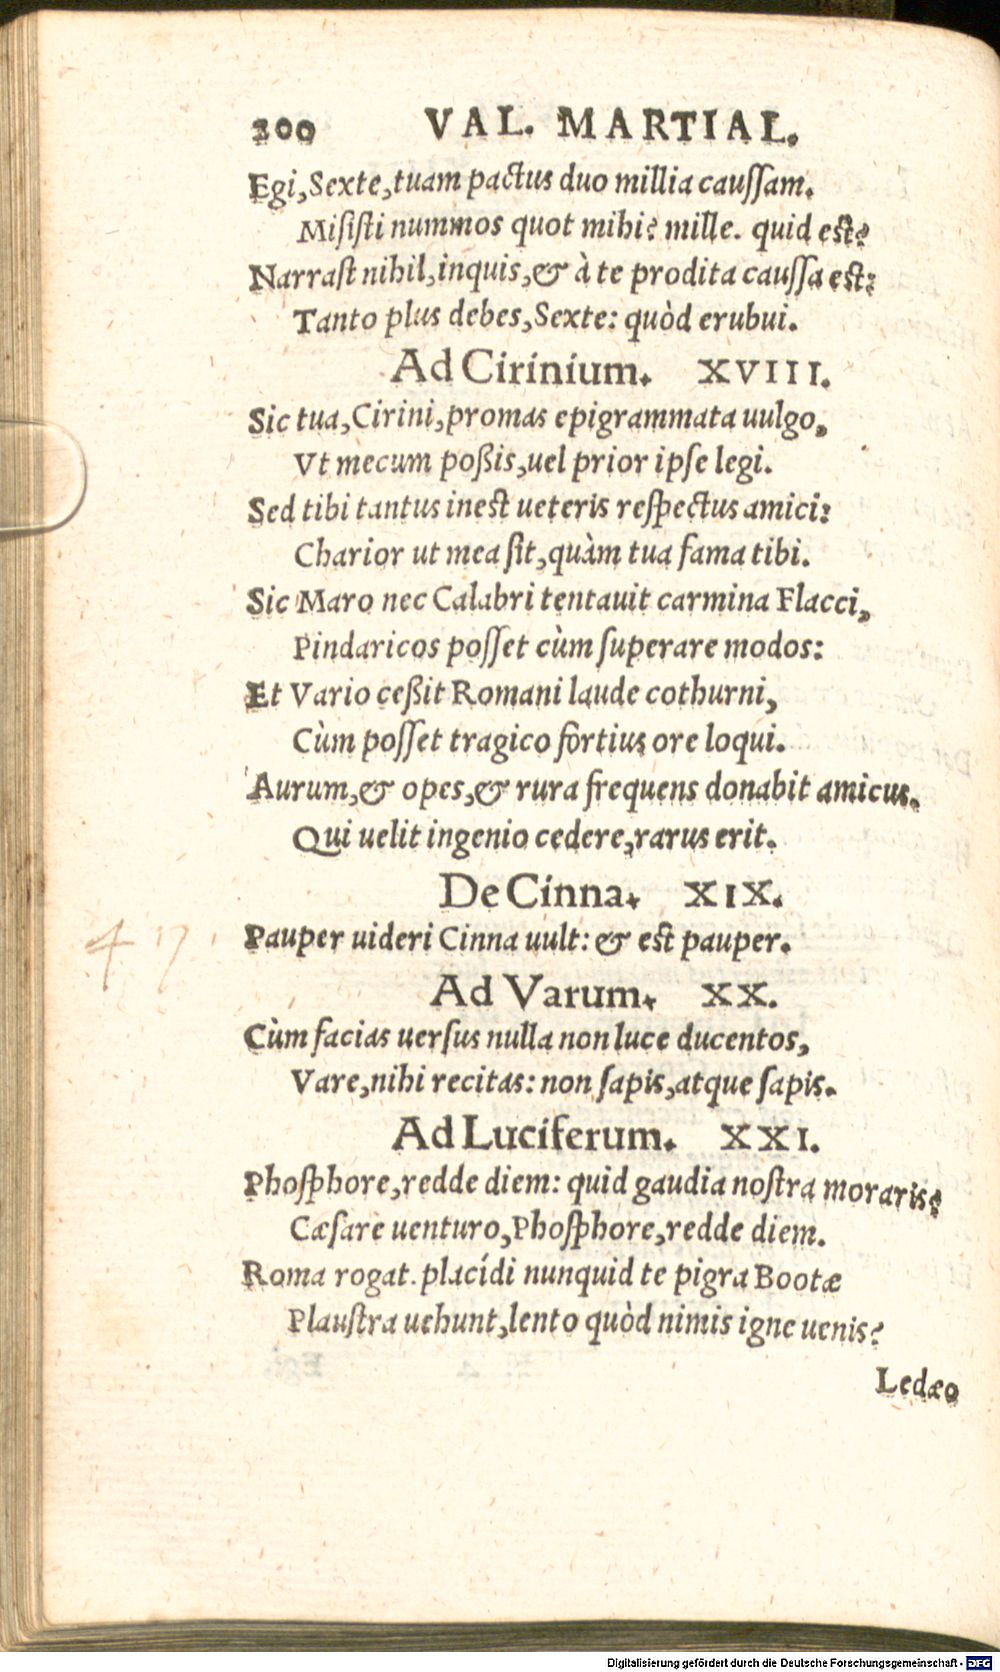 200 VAL. MARTIAL.
Egi, Sexte, tuam pactus duo millia caussam.
Misisti nummos quot mihi? mille. quid est?
Narrast nihil, inquis, & à te prodita caussa est:
Tanto plus debes, Sexte: quòd erubui.
Ad Cirinium. XVIII.
Sic tua, Cirini, promas epigrammata uulgo,
Vt mecum poßis, uel prior ipse legi.
Sed tibi tantus inest ueteris respectus amici:
Charior ut mea sit, quàm tua fama tibi.
Sic Maro nec Calabri tentauit carmina Flacci,
Pindaricos posset cùm superare modos:
Et Vario ceßit Romani laude cothurni,
Cùm posset tragico fortius ore loqui.
Aurum, & opes, & rura frequens donabit amicus.
Qui uelit ingenio cedere, rarus erit.
De Cinna. XIX.
4 17.
Pauper uideri Cinna uult: & est pauper.
Ad Varum. XX.
Cùm facias uersus nulla non luce ducentos,
Vare, nihi recitas: non sapis, atque sapis.
Ad Luciferum. XXI.
Phosphore, redde diem: quid gaudia nostra moraris?
Cæsare uenturo, Phosphore, redde diem.
Roma rogat. placídi nunquid te pigra Bootæ
Plaustra uehunt, lento quòd nimis igne uenis?
Ledæo
Digitalisierung gefördert durch die Deutsche Forschungsgemeinschaft - DFG